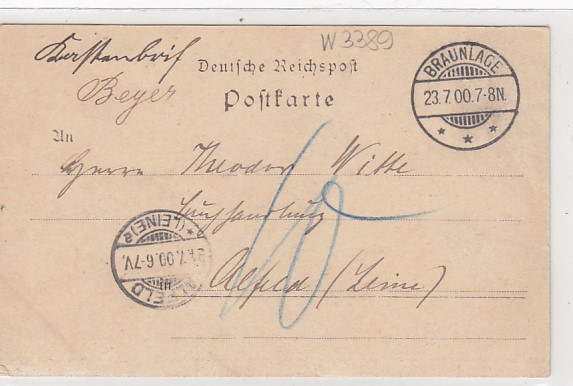 W 3389
Kastenbrief
Beyer
Deutsche Reichspost
Postkarte
BRAUNLAGE
23.7.00.7-8N.
An
Herrn Theodor Witte
Buchhandlung
Alfeld (Leine)
10
ALFELD
7.00.6-7V.
*(LEINE)a